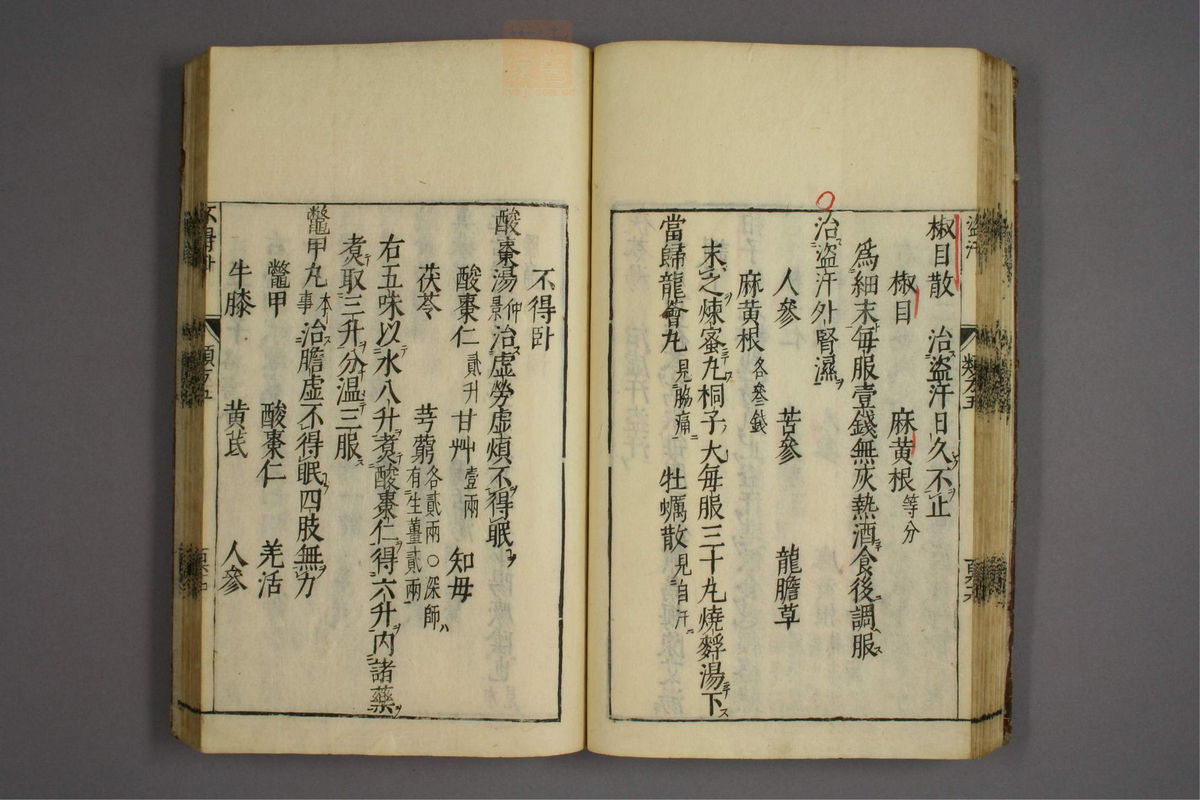 盗汗
椒目散　治盗汗日久不止
椒目　麻黄根等分
爲細末毎服壹錢無灰熱酒食後調服
治盗汗外腎濕
人參　苦參　龍膽草
麻黄根各參錢
末之煉蜜丸桐子大毎服三十丸燒麪湯下
當歸龍薈丸見脇痛　牡蠣散見自汗
不得卧
酸棗湯仲景治虚勞虚煩不得眠
酸棗仁貳升　甘艸壹兩　知母
茯苓　芎藭各貳兩○深師有生薑貳兩
右五味以水八升煮酸棗仁得六升内諸藥
煮取三升分温三服
鼈甲丸本事治膽虚不得眠四肢無力
鼈甲　酸棗仁　羌活
牛膝　黄茋　人參